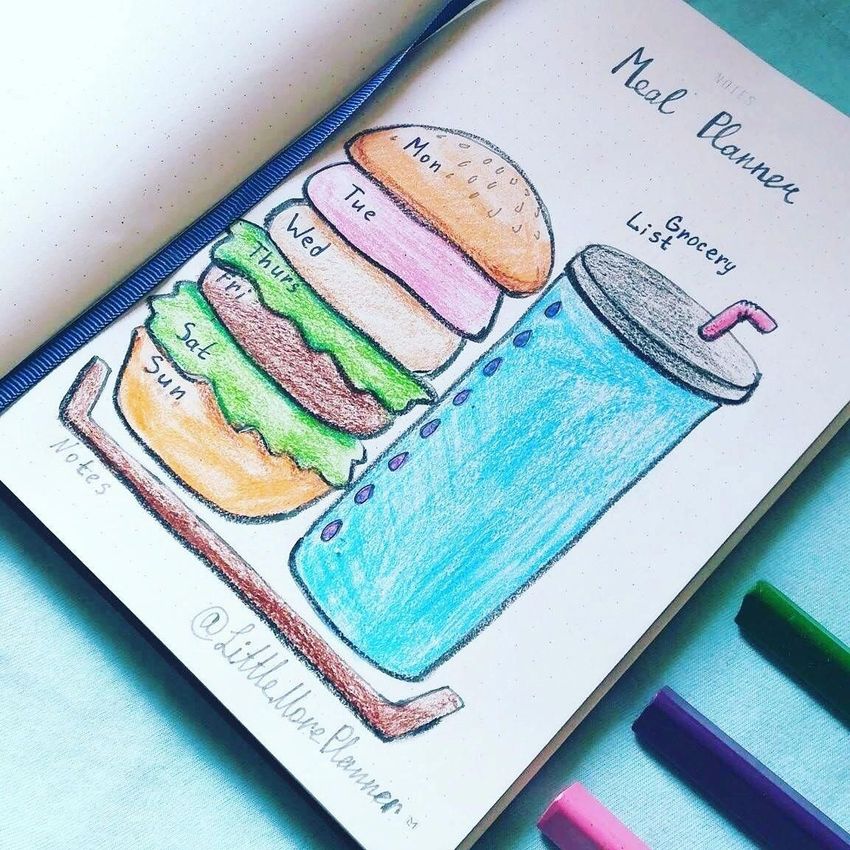 NOTES
Meal Planner
Grocery
List
Mon
Tue
Wed
Thurs
Fri
Sat
Sun
Notes
@LittleMorePlanner